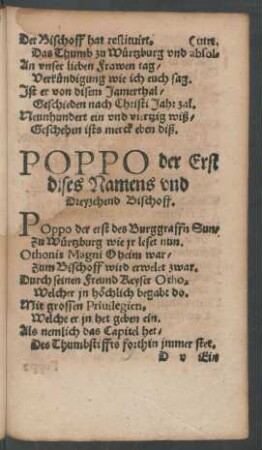 Der Bischoff hat restituirt. (uirt.
Das Thumb zu Würtzburg vnd absol-
An vnser lieben Frawen tag/
Verkündigung wie ich euch sag.
Ist er von disem Jamerthal/
Geschieden nach Christi Jahr zal.
Neunhundert ein vnd viertzig wiß/
Geschehen ists merck eben diß.
POPPO der Erst
dises Namens vnd
Dreyzehend Bischoff.
Poppo der erst des Burggraffn Sun/
Zu Würtzburg wie jr leset nun.
Othonis Magni Oheim war/
Zum Bischoff wird erwelet zwar.
Durch seinen Freund Keyser Otho/
Welcher jn höchlich begabt do.
Mit grossen Privilegien/
Welche er jn het geben ein.
Als nemlich das Capitel het/
Des Thumbstiffts forthin jmmer stet.
D v Ein